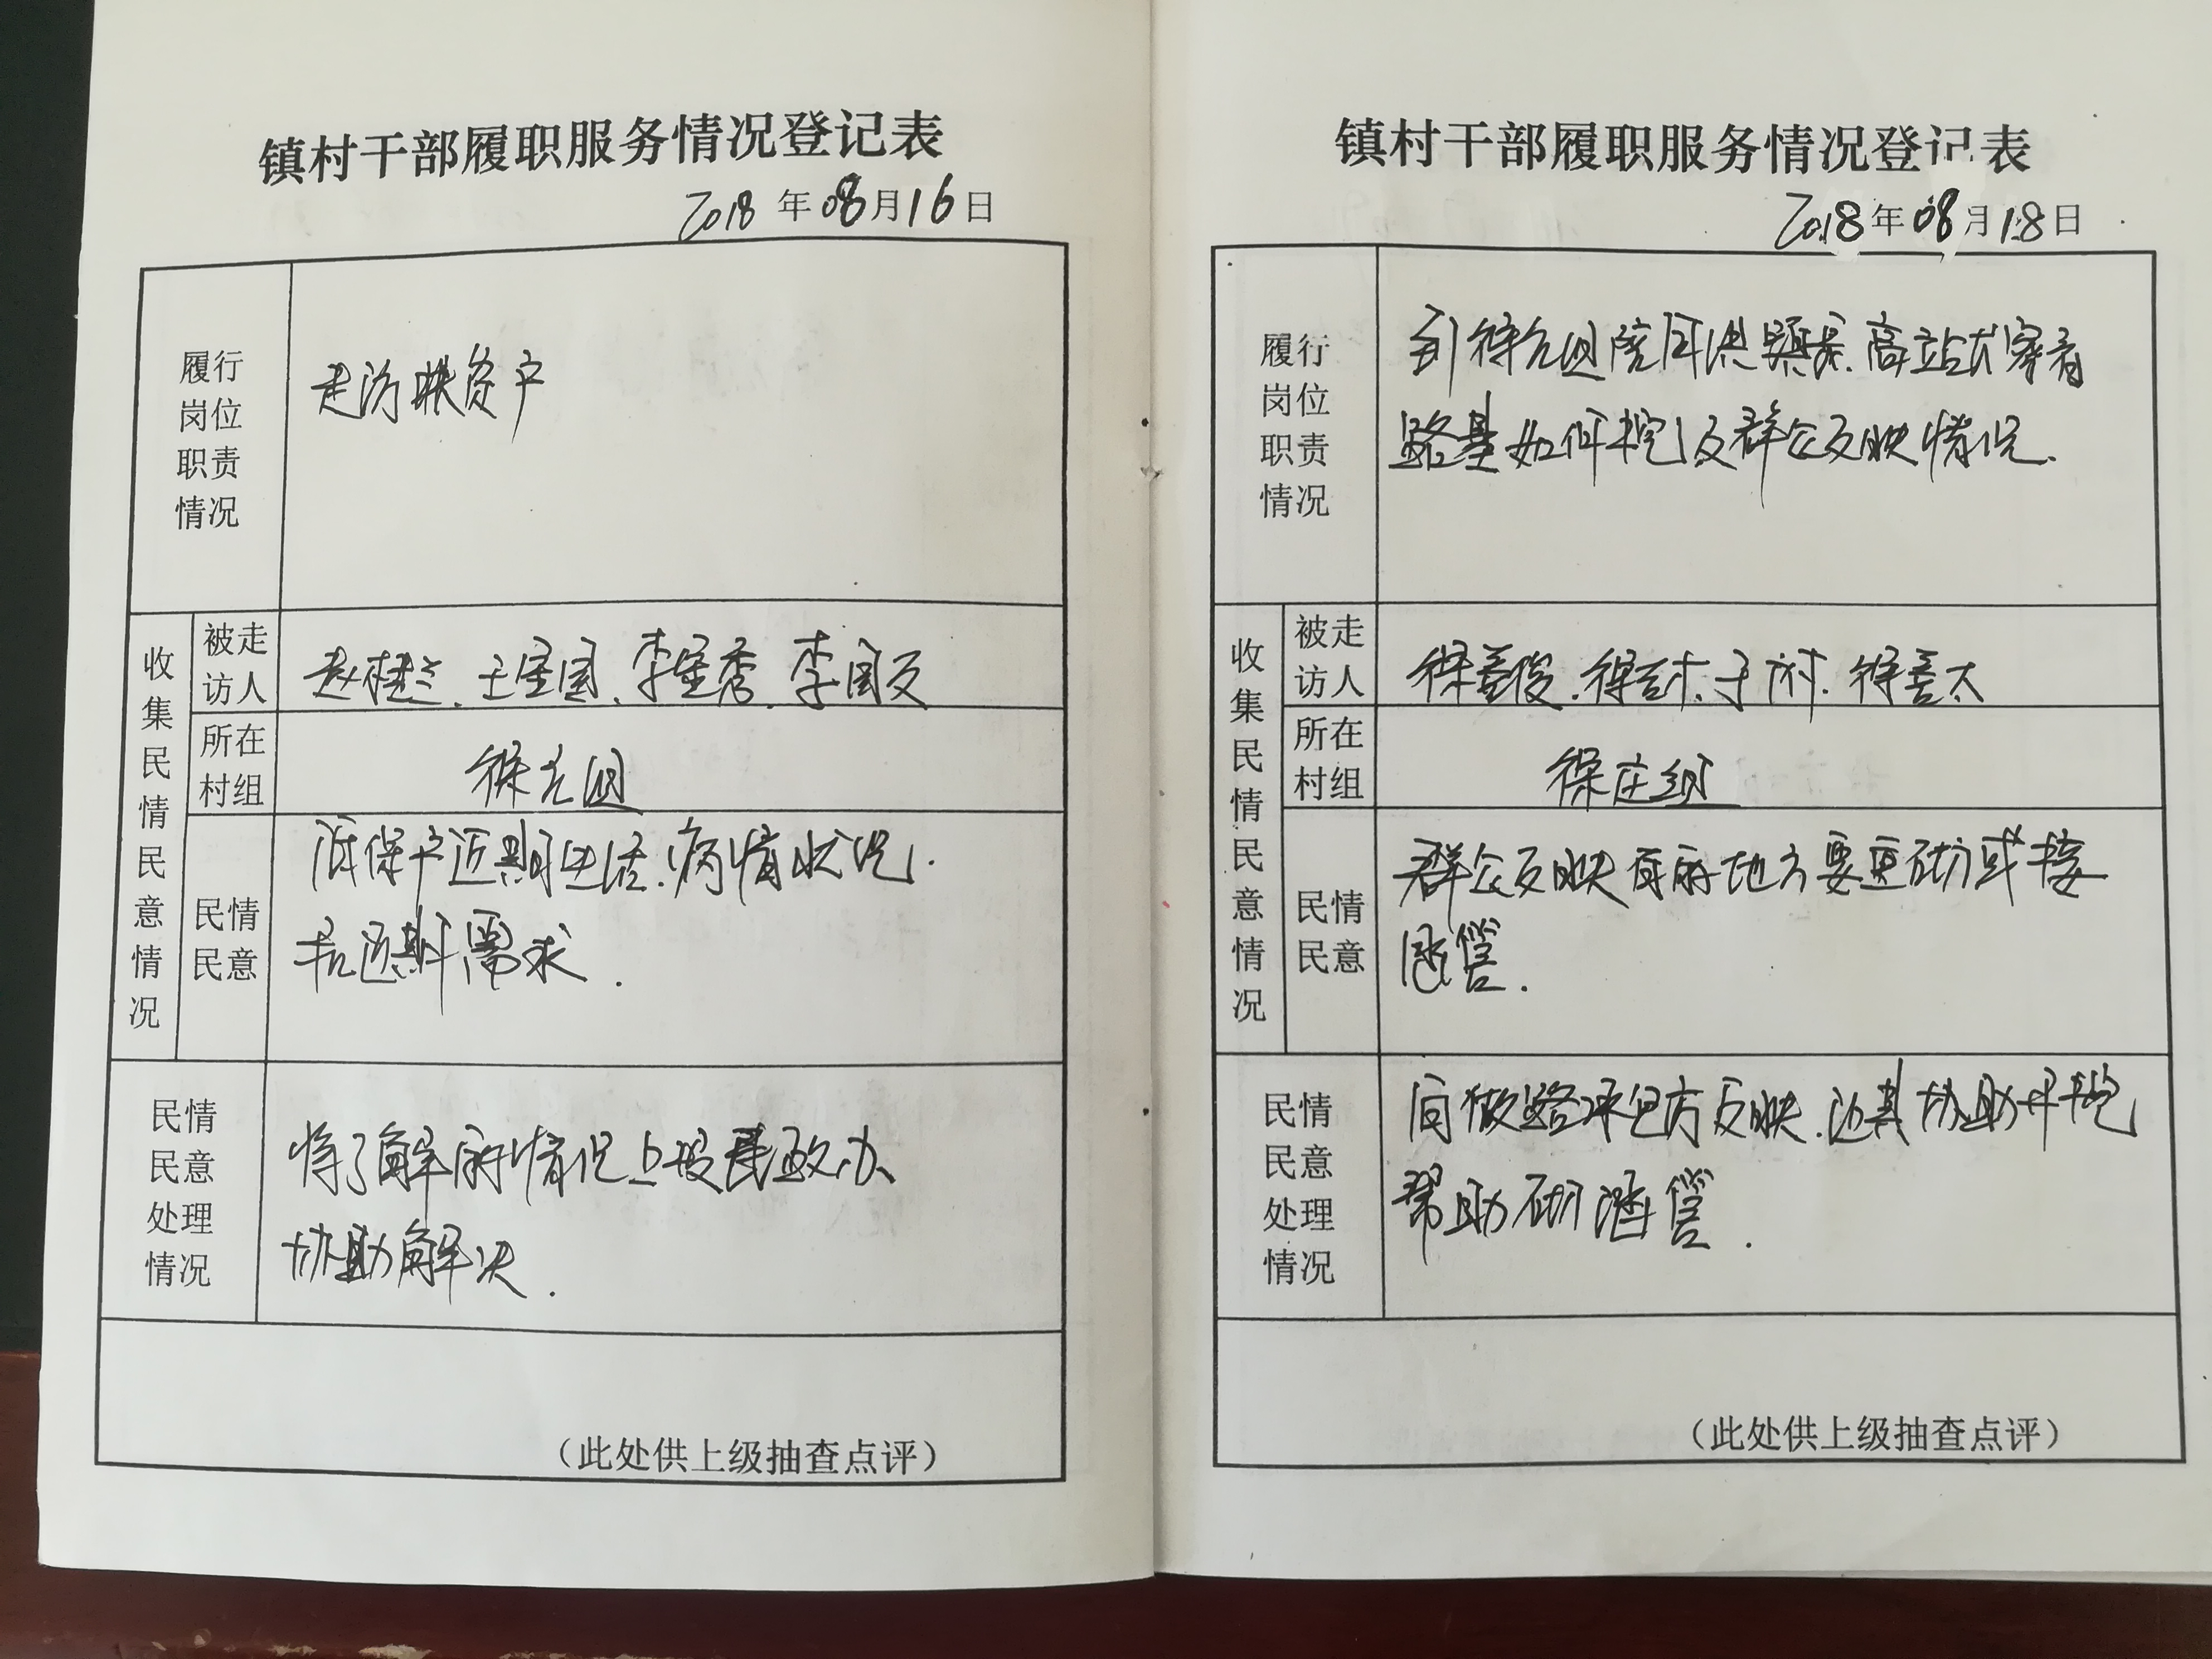 镇村干部履职服务情况登记表
2018年08月16日
履行
岗位
职责
情况
走访
户
收集民情民意情况
被走
访人
赵桂兰、王宝国、李宝秀、李国文
所在
村组
徐元组
民情
民意
低保户近期生活、病情状况.
需求.
民情
民意
处理
情况
将了解的情况上报民政办
协助解决.
(此处供上级抽查点评)
镇村干部履职服务情况登记表
2018年08月18日
履行
岗位
职责
情况
到徐元组
路基如何挖及群众反映情况.
收集民情民意情况
被走
访人
徐善俊、徐善太
所在
村组
徐庄组
民情
民意
群众反映有的地方要重砌或接
涵管.
民情
民意
处理
情况
向做路承包方反映.
帮助砌涵管.
(此处供上级抽查点评)